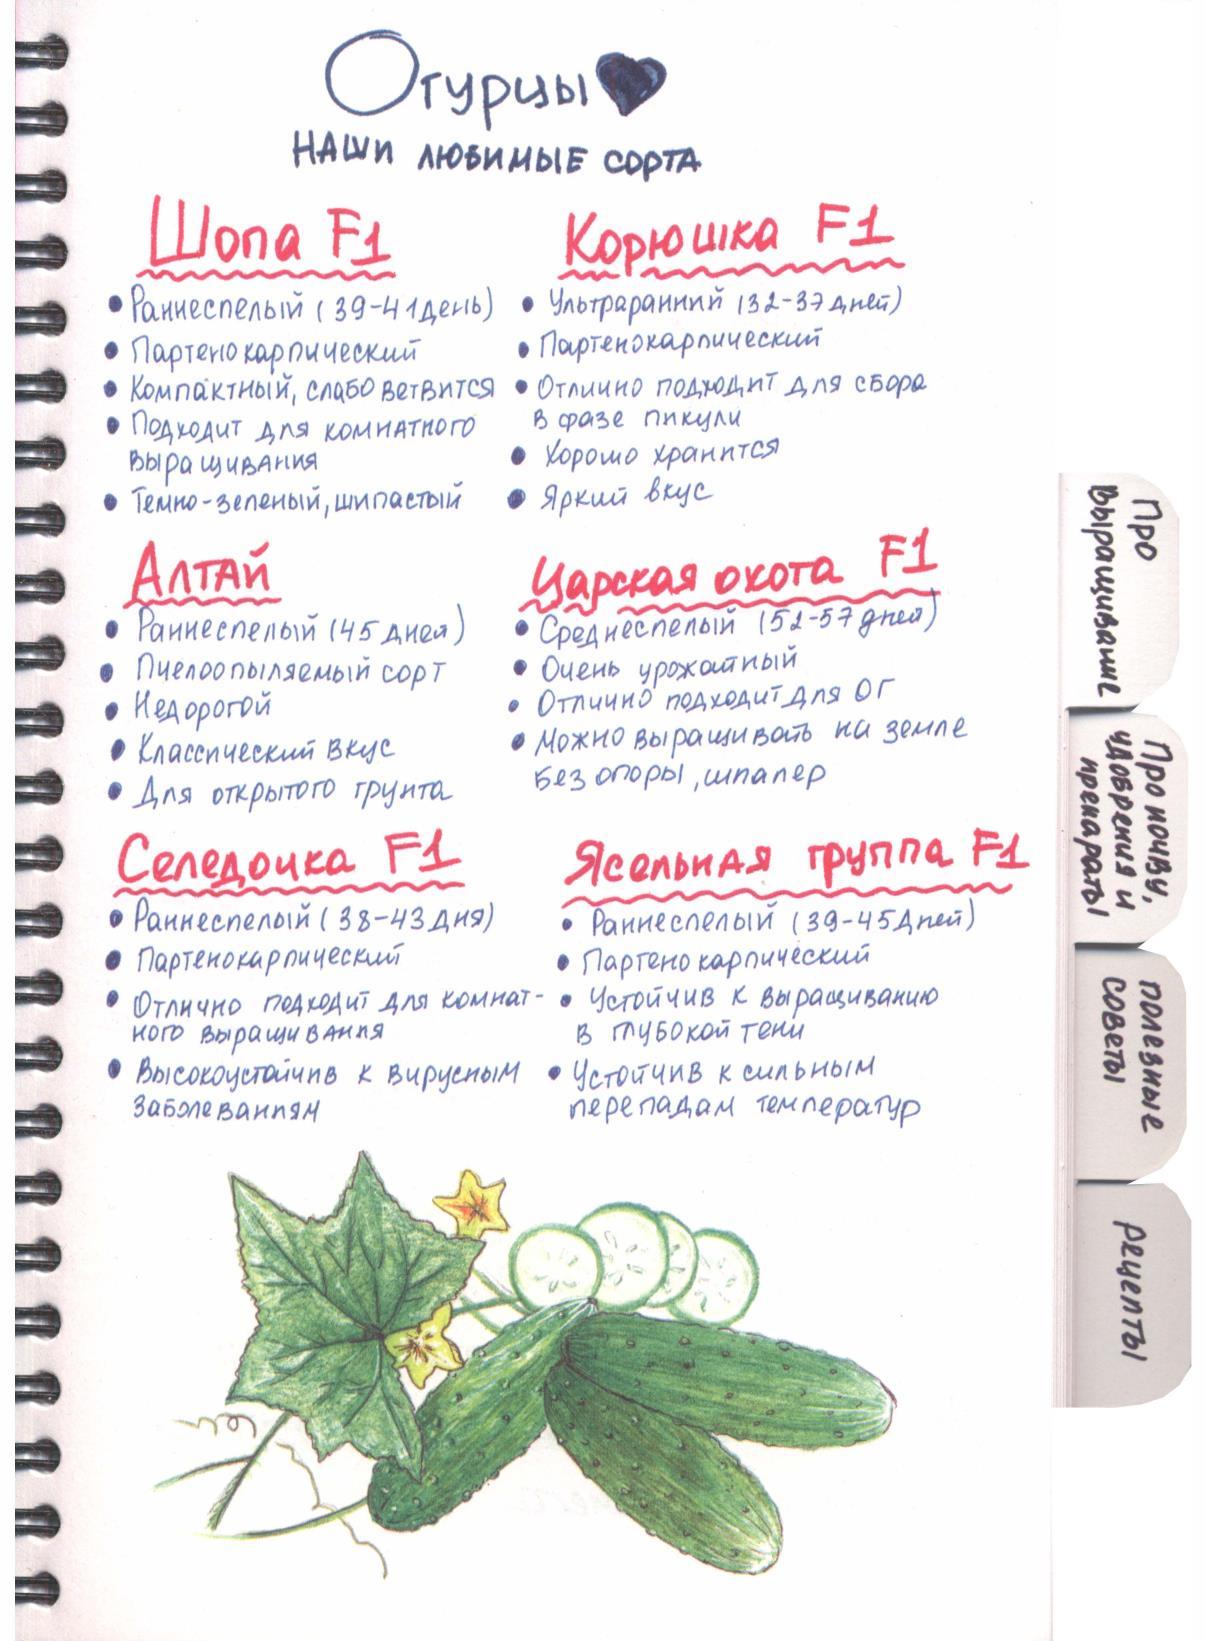 Огурцы
НАШИ ЛЮБИМЫЕ СОРТА
Шопа F1
• Раннеспелый (39-41 день)
• Партенокарпический
• Компактный, слабо ветвится
• Подходит для комнатного
выращивания
• Темно-зеленый, шипастый
Корюшка F1
• Ультраранний (32-37 дней)
• Партенокарпический
• Отлично подходит для сбора
в фазе пикули
• Хорошо хранится
• Яркий вкус
Алтай
• Раннеспелый (45 дней)
• Пчелоопыляемый сорт
• Недорогой
• Классический вкус
• Для открытого грунта
Царская охота F1
• Среднеспелый (52-57 дней)
• Очень урожайный
• Отлично подходит для ОГ
• Можно выращивать на земле
без опоры, шпалер
Селедочка F1
• Раннеспелый (38-43 дня)
• Партенокарпический
• Отлично подходит для комнат-
ного выращивания
• Высокоустойчив к вирусным
заболеваниям
Ясельная группа F1
• Раннеспелый (39-45 дней)
• Партенокарпический
• Устойчив к выращиванию
в глубокой тени
• Устойчив к сильным
перепадам температур
Про
выращивание
Про почву,
удобрения и
препараты
полезные
советы
рецепты